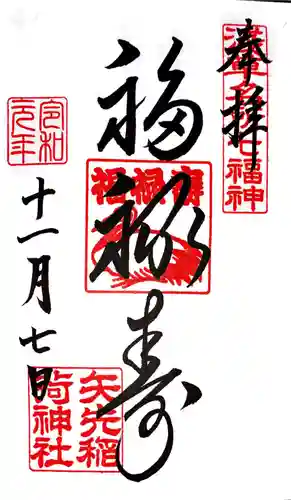 奉拝
浅草名所七福神
福禄寿
福禄壽
令和
元年
十一月七日
矢先稲
荷神社